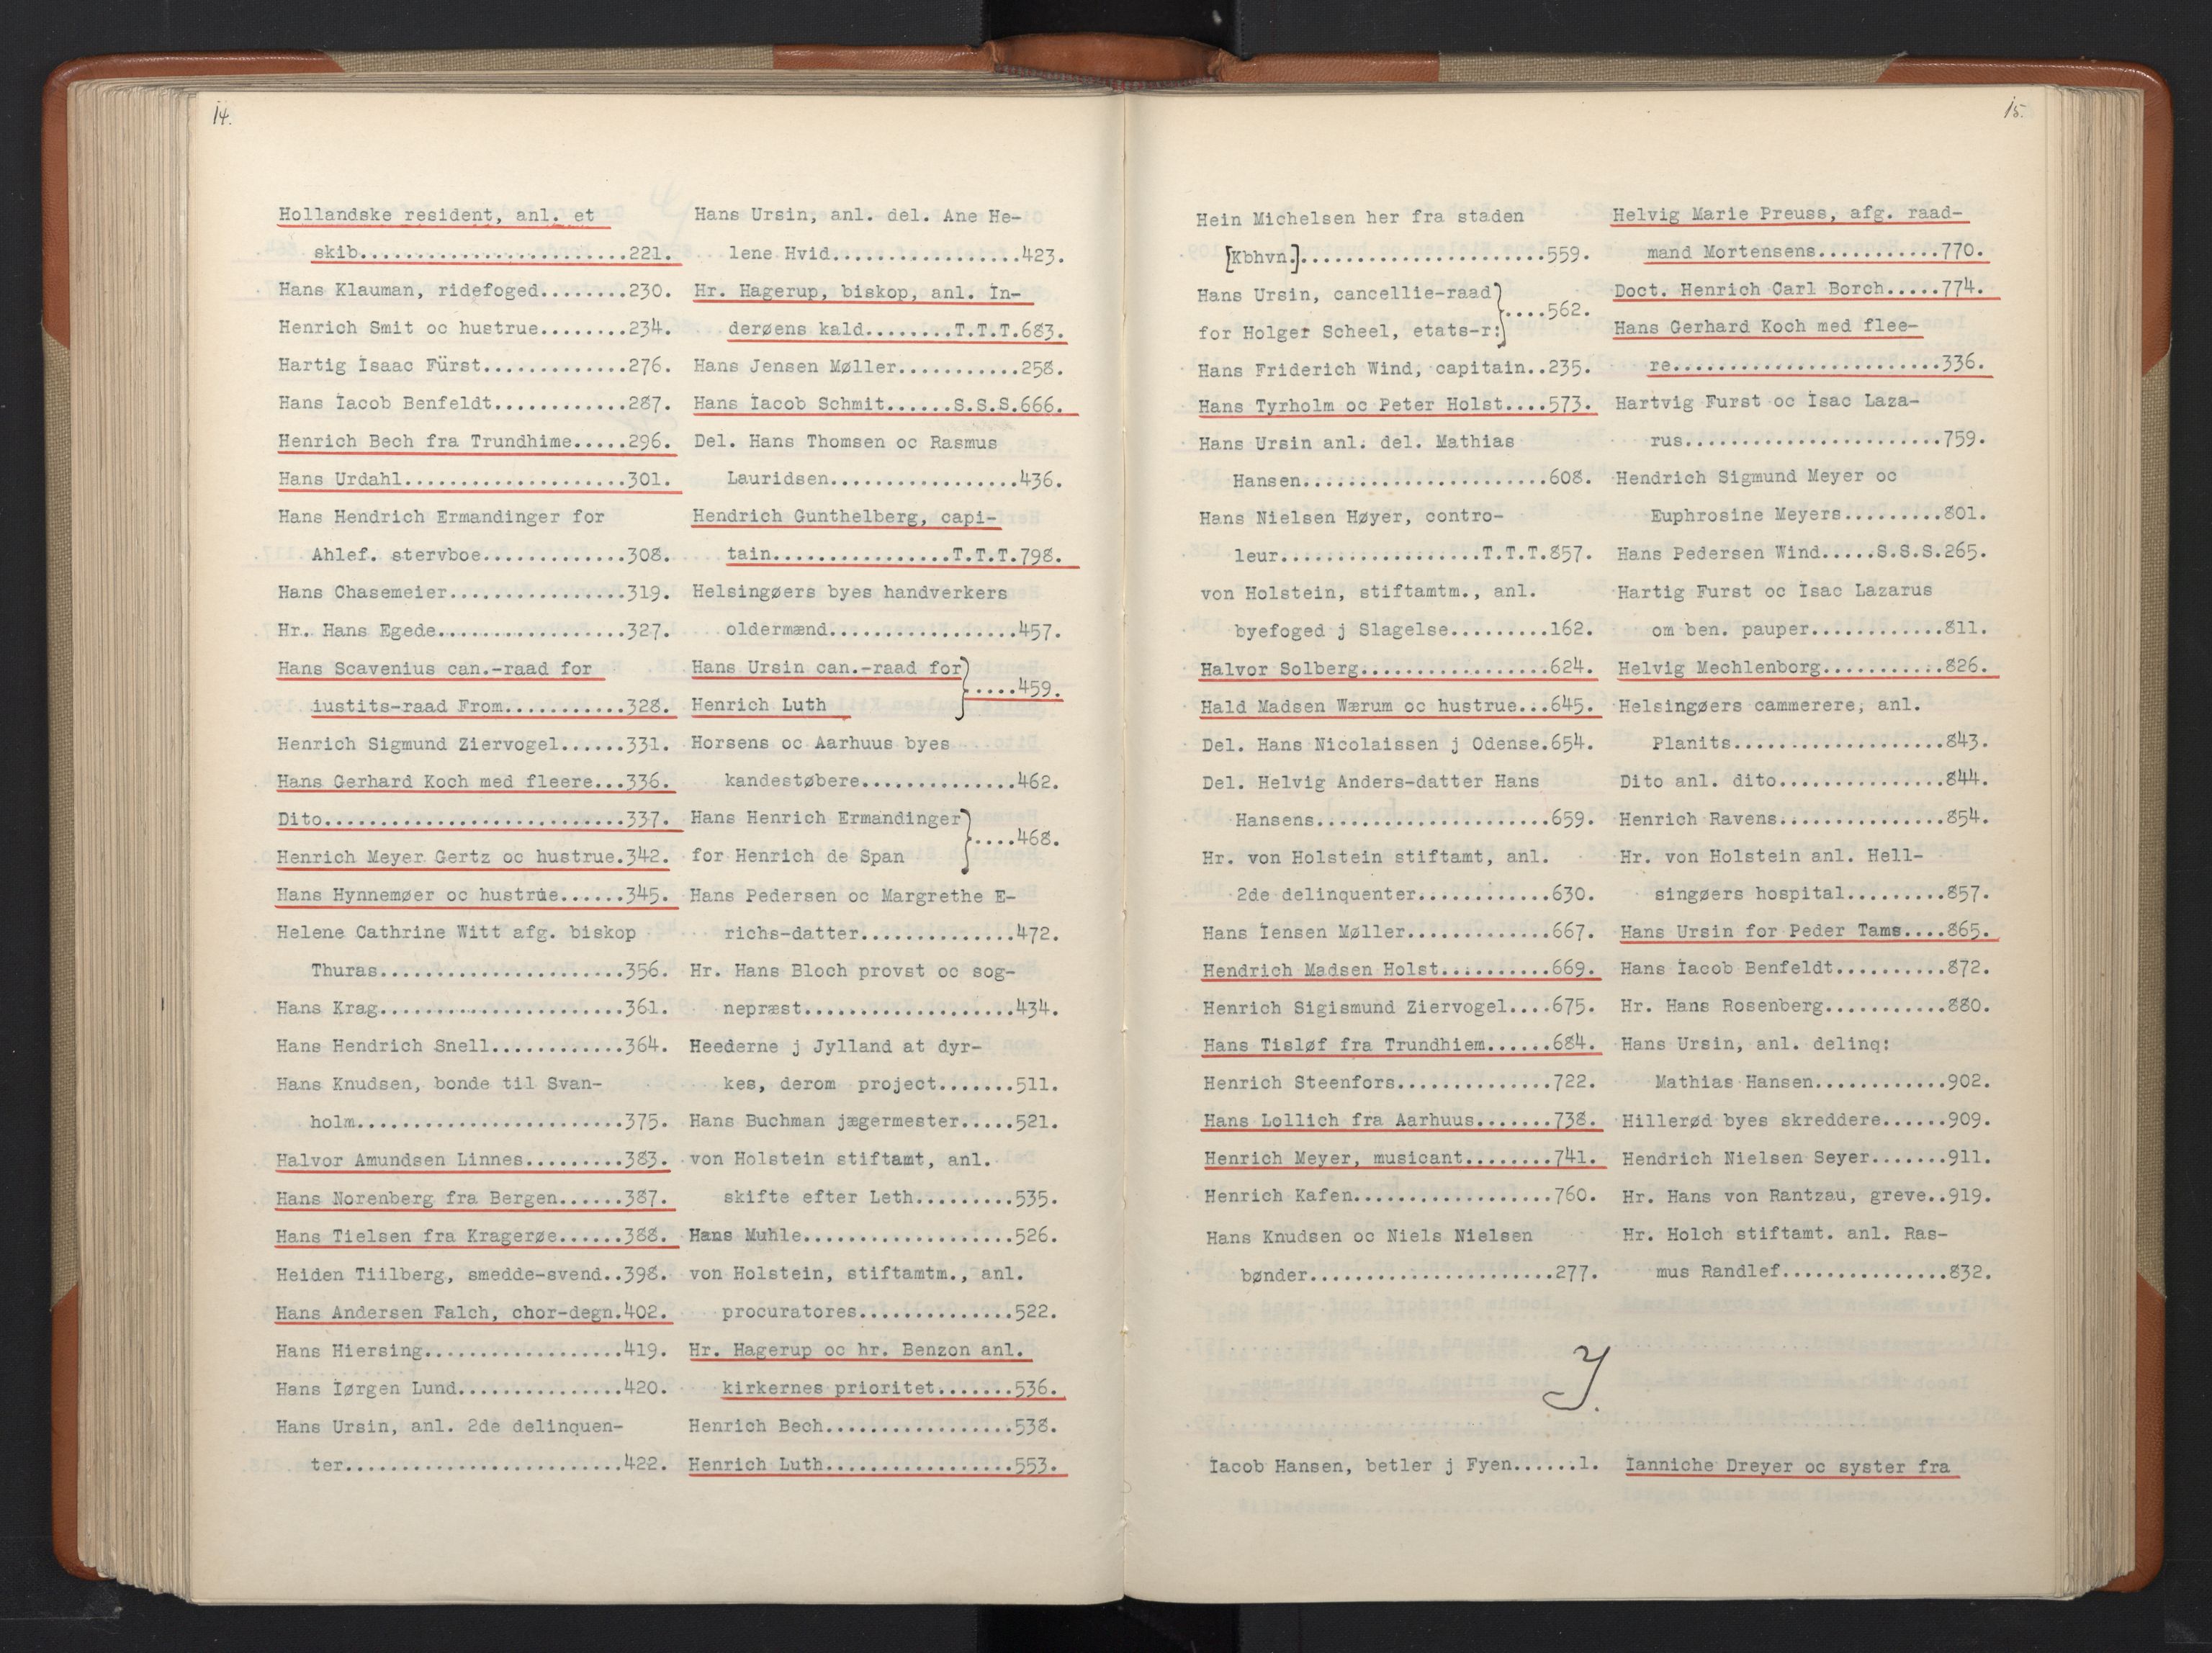 14.
Hollandske resident, anl. et
skib........................221.
Hans Klauman, ridefoged........230.
Henrich Smit oc hustrue........234.
Hartig İsaac Fürst.............276.
Hans İacob Benfeldt............287.
Henrich Bech fra Trundhime.....296.
Hans Urdahl....................301.
Hans Hendrich Ermandinger for
Ahlef. stervboe.............308.
Hans Chasemeier................319.
Hr. Hans Egede.................327.
Hans Scavenius can.-raad for
iustits-raad From...........328.
Henrich Sigmund Ziervogel......331.
Hans Gerhard Koch med fleere...336.
Dito...........................337.
Henrich Meyer Gertz oc hustrue.342.
Hans Hynnemøer oc hustrue......345.
Helene Cathrine Witt afg. biskop
Thuras......................356.
Hans Krag......................361.
Hans Hendrich Snell............364.
Hans Knudsen, bonde til Svan-
holm........................375.
Halvor Amundsen Linnes.........383.
Hans Norenberg fra Bergen......387.
Hans Tielsen fra Kragerøe......388.
Heiden Tiilberg, smedde-svend..398.
Hans Andersen Falch, chor-degn.402.
Hans Hiersing..................419.
Hans İørgen Lund...............420.
Hans Ursin, anl. 2de delinquen-
ter.........................422.
Hans Ursin, anl. del. Ane He-
lene Hvid.................423.
Hr. Hagerup, biskop, anl. İn-
derøens kald........T.T.T.683.
Hans Jensen Møller...........258.
Hans İacob Schmit......S.S.S.666.
Del. Hans Thomsen oc Rasmus
Lauridsen.................436.
Hendrich Gunthelberg, capi-
tain................T.T.T.798.
Helsingøers byes handverkers
oldermænd.................457.
Hans Ursin can.-raad for
Henrich Luth } ....459.
Horsens oc Aarhuus byes
kandestøbere..............462.
Hans Henrich Ermandinger
for Henrich de Span } ....468.
Hans Pedersen oc Margrethe E-
richs-datter..............472.
Hr. Hans Bloch provst oc sog-
nepræst...................434.
Heederne j Jylland at dyr-
kes, derom project.......511.
Hans Buchman jægermester.....521.
von Holstein stiftamt, anl.
skifte efter Leth.........535.
Hans Muhle...................526.
von Holstein, stiftamtm., anl.
procuratores..............522.
Hr. Hagerup oc hr. Benzon anl.
kirkernes prioritet.......536.
Henrich Bech.................538.
Henrich Luth.................553.
15.
Hein Michelsen her fra staden
[Kbhvn.]......................559.
Hans Ursin, cancellie-raad
for Holger Scheel, etats-r: } ....562.
Hans Friderich Wind, capitain..235.
Hans Tyrholm oc Peter Holst....573.
Hans Ursin anl. del. Mathias
Hansen......................608.
Hans Nielsen Høyer, contro-
leur..................T.T.T.857.
von Holstein, stiftamtm., anl.
byefoged j Slagelse.........162.
Halvor Solberg.................624.
Hald Madsen Wærum oc hustrue...645.
Del. Hans Nicolaissen j Odense.654.
Del. Helvig Anders-datter Hans
Hansens.....................659.
Hr. von Holstein stiftamt, anl.
2de delinquenter............630.
Hans İensen Møller.............667.
Hendrich Madsen Holst..........669.
Henrich Sigismund Ziervogel....675.
Hans Tisløf fra Trundhiem......684.
Henrich Steenfors..............722.
Hans Lollich fra Aarhuus.......738.
Henrich Meyer, musicant........741.
Henrich Kafen..................760.
Hans Knudsen oc Niels Nielsen
bønder......................277.
Helvig Marie Preuss, afg. raad-
mand Mortensens...........770.
Doct. Henrich Carl Borch.....774.
Hans Gerhard Koch med flee-
re........................336.
Hartvig Furst oc İsac Laza-
rus.......................759.
Hendrich Sigmund Meyer oc
Euphrosine Meyers.........801.
Hans Pedersen Wind.....S.S.S.265.
Hartig Furst oc İsac Lazarus
om ben. pauper............811.
Helvig Mechlenborg...........826.
Helsingøers cammerere, anl.
Planits...................843.
Dito anl. dito...............844.
Henrich Ravens...............854.
Hr. von Holstein anl. Hell-
singøers hospital.........857.
Hans Ursin for Peder Tams....865.
Hans İacob Benfeldt..........872.
Hr. Hans Rosenberg...........880.
Hans Ursin, anl. delinq:
Mathias Hansen............902.
Hillerød byes skreddere......909.
Hendrich Nielsen Seyer.......911.
Hr. Hans von Rantzau, greve..919.
Hr. Holch stiftamt. anl. Ras-
mus Randlef...............832.
J.
İacob Hansen, betler j Fyen......1.
İanniche Dreyer oc syster fra